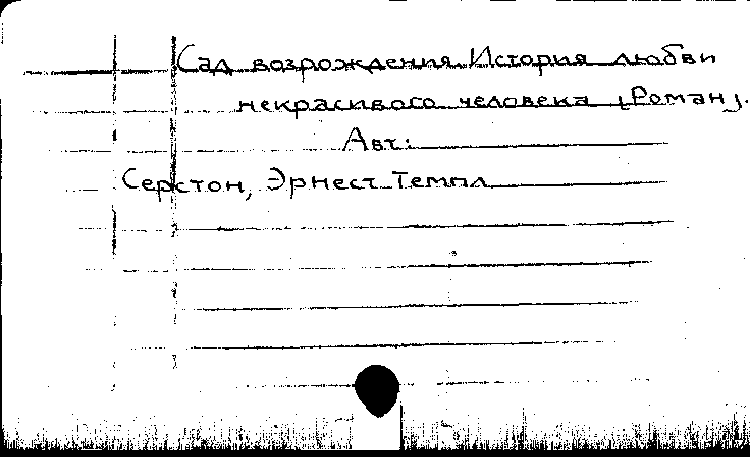 Сад возрождения. История любви
некрасивого человека [Роман].
Авт:
Серстон, Эрнест Темпл